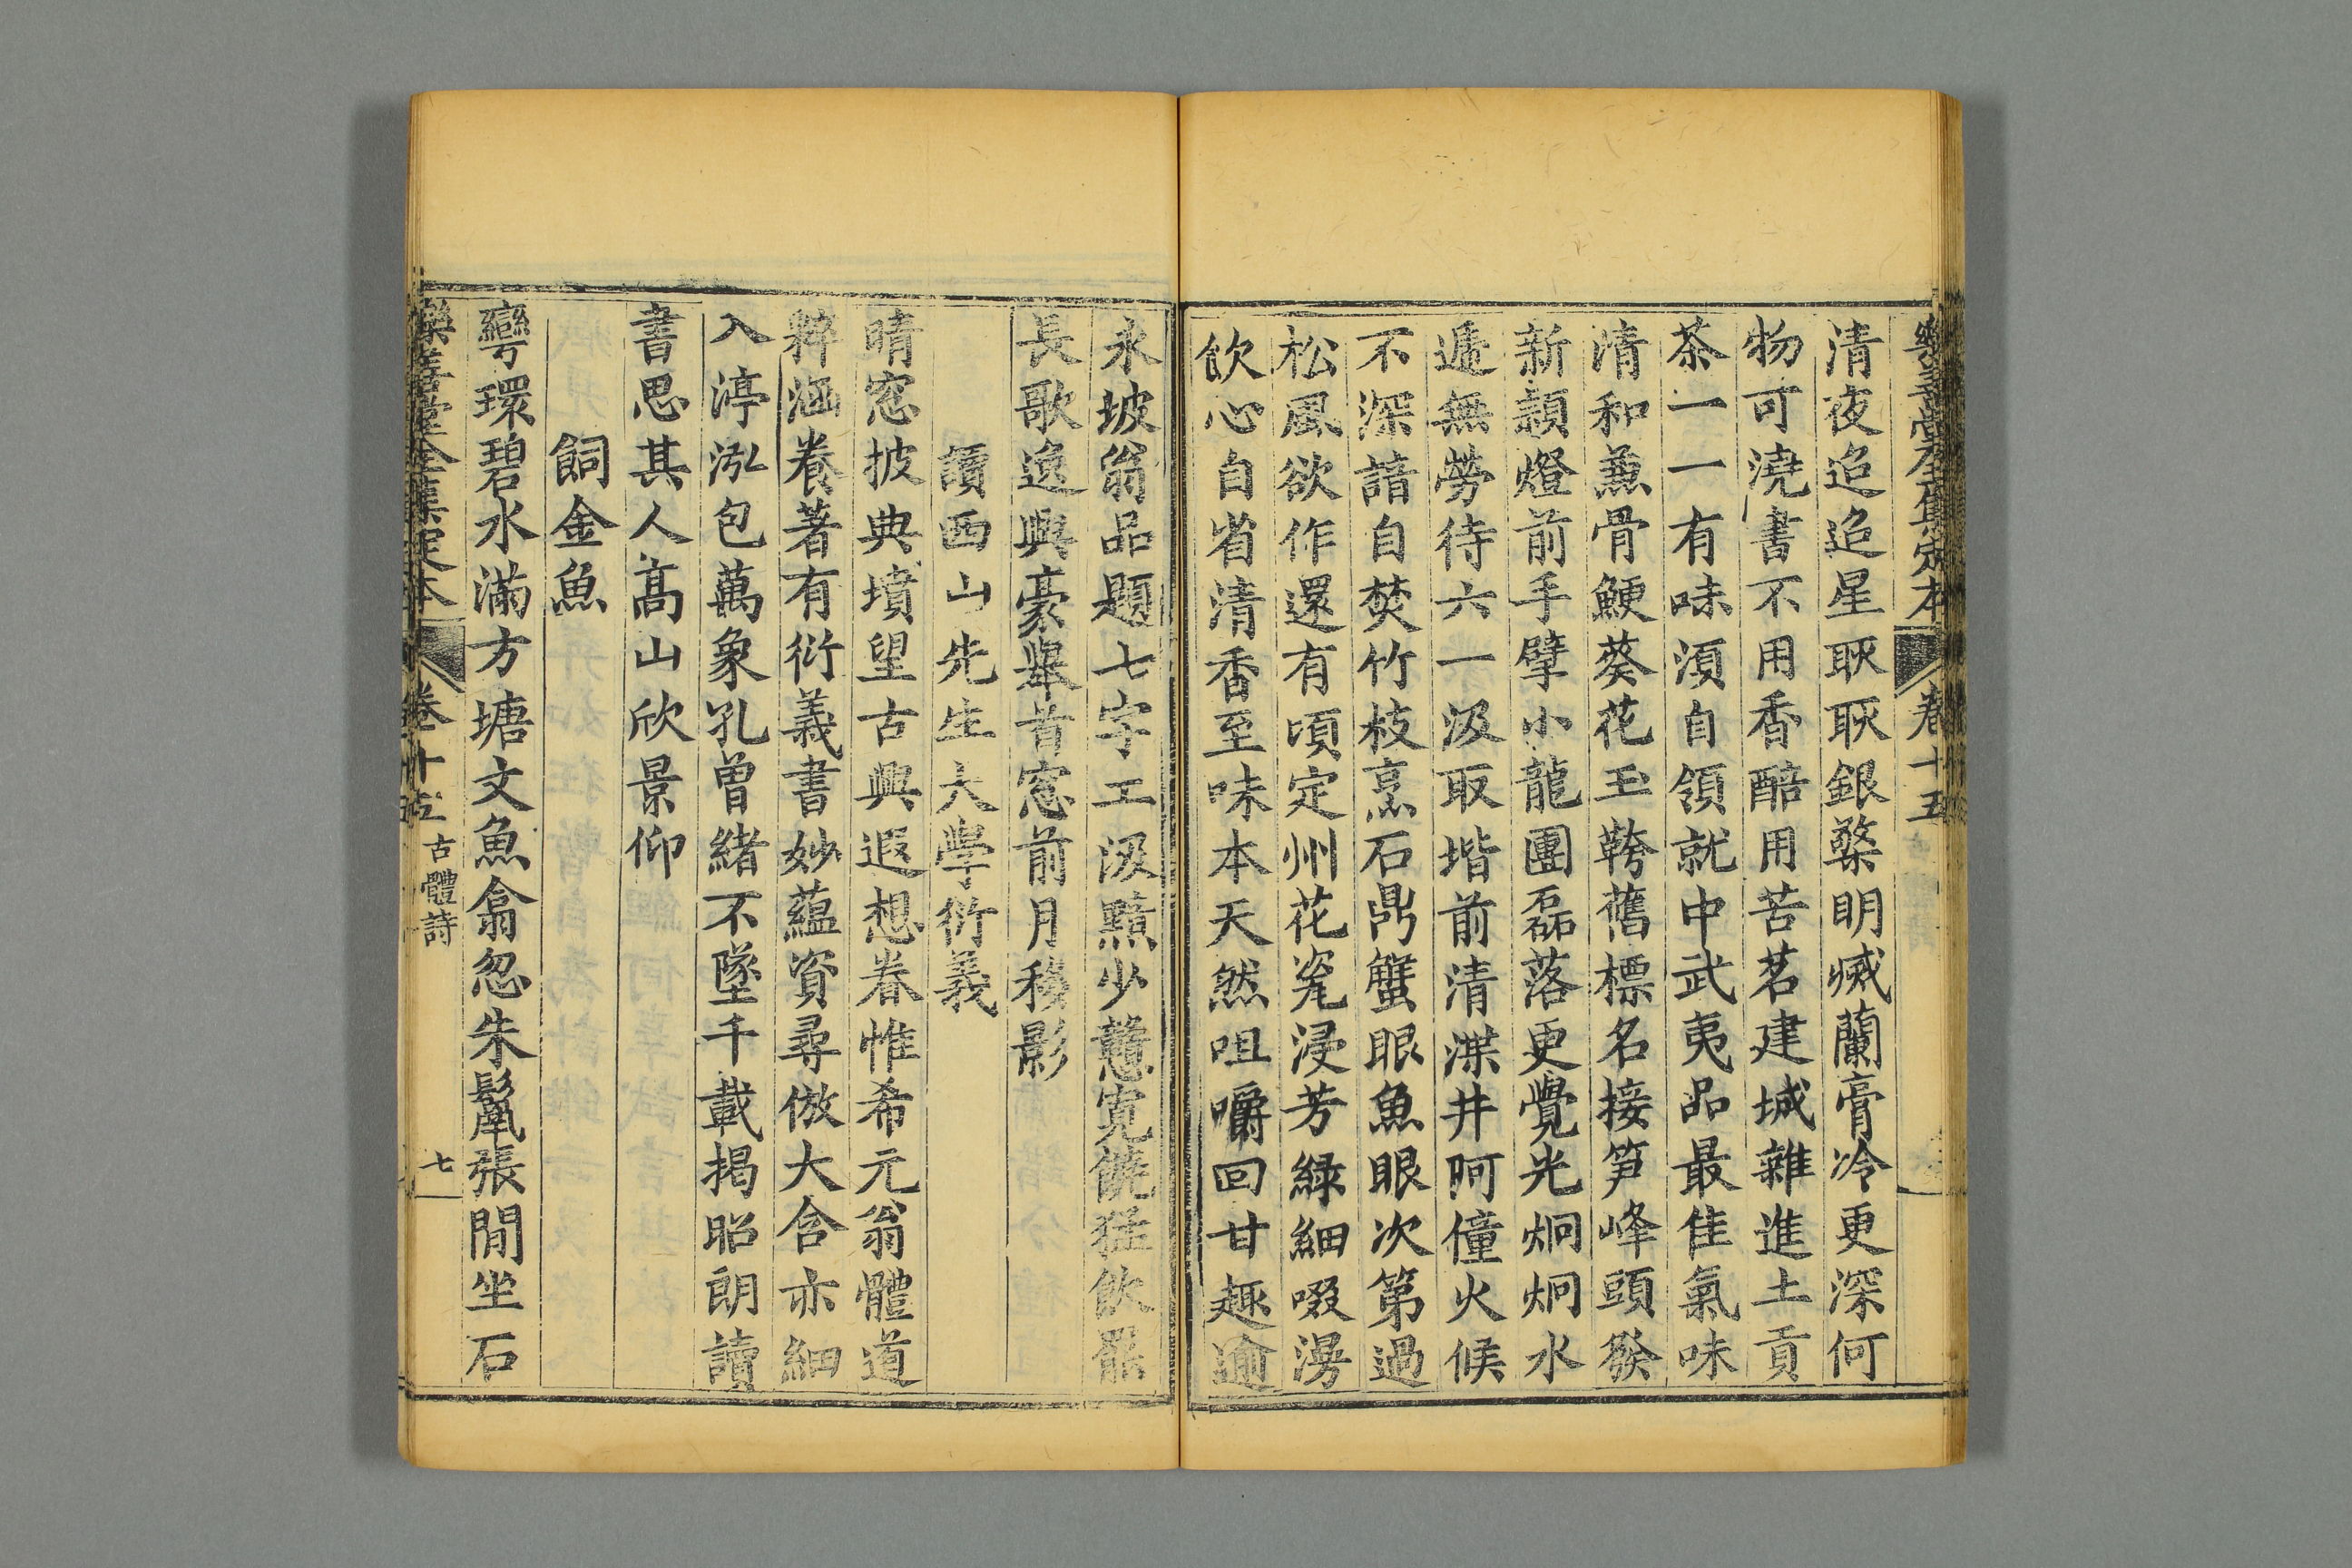 樂善堂全集定本 卷十五
清夜迢迢星耿耿銀檠明滅蘭膏冷更深何
物可澆書不用香醅用苦茗建城雜進土貢
茶一一有味須自領就中武夷品最佳氣味
清和兼骨鯁葵花玉䩞舊標名接笋峰頭發
新穎燈前手擘小龍團磊落更覺光烱烱水
遞無勞待六一汲取堦前清渫井阿僮火候
不深諳自焚竹枝烹石鼎蟹眼魚眼次第過
松風欲作還有頃定州花瓷浸芳緑細啜漫
飲心自省清香至味本天然咀嚼回甘趣逾
永坡翁品題七字工汲黯少戇寛饒猛飲罷
長歌逸興豪舉首窓前月移影
讀西山先生大學衍義
晴窓披典墳望古興遐想眷惟希元翁體道
粹涵養著有衍義書妙藴資尋倣大含亦細
入渟泓包萬象孔曾緒不墜千載掲昭朗讀
書思其人高山欣景仰
飼金魚
彎環碧水滿方塘文魚翕忽朱鬣張閒坐石
樂善堂全集定本 卷十五 古體詩 七